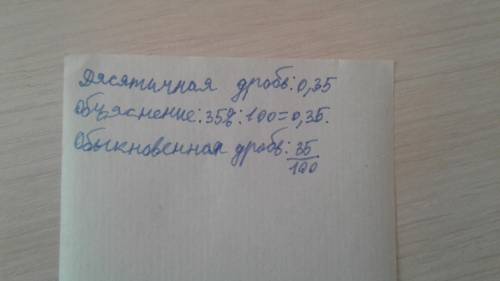 Десятичная дробь: 0,35
Объяснение: 35% : 100 = 0,35.
Обыкновенная дробь: 35/100